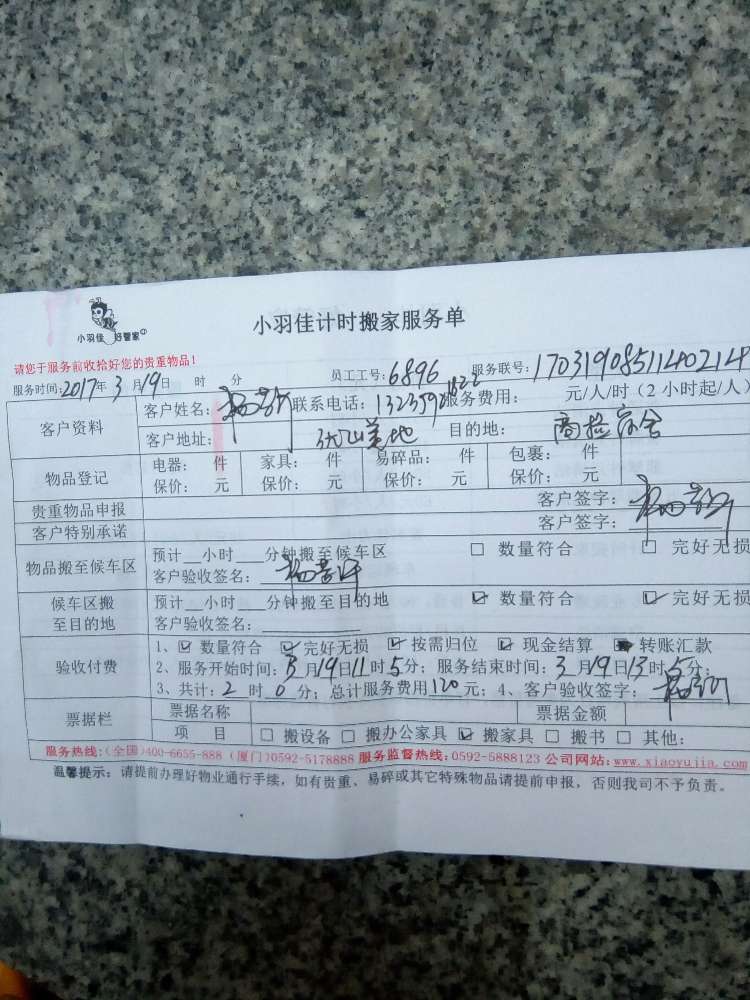 小羽佳 好管家
小羽佳计时搬家服务单
请您于服务前收拾好您的贵重物品！
服务时间：2017年3月19日 时 分 员工工号：6896 服务联号：170319085114 0214
客户资料 客户姓名： 联系电话：132359 1822 服务费用： 元/人/时（2小时起/人）
客户地址： 美地 目的地：商检宿舍
物品登记 电器： 件 家具： 件 易碎品： 件 包裹： 件
保价： 元 保价： 元 保价： 元 保价： 元
贵重物品申报 客户签字：
客户特别承诺 客户签字：
物品搬至候车区 预计__小时___分钟搬至候车区 □ 数量符合 □ 完好无损
客户验收签名：
候车区搬至目的地 预计__小时___分钟搬至目的地 ☑ 数量符合 ☑ 完好无损
客户验收签名：
验收付费 1、☑ 数量符合 ☑ 完好无损 ☑ 按需归位 ☑ 现金结算 转账汇款
2、服务开始时间：3月19日11时5分；服务结束时间：3月19日13时5分；
3、共计：2时0分；总计服务费用120元；4、客户验收签字：
票据栏 票据名称 票据金额
项 目 □ 搬设备 □ 搬办公家具 ☑ 搬家具 □ 搬书 □ 其他：
服务热线：（全国）400-6655-888（厦门）0592-5178888 服务监督热线：0592-5888123 公司网站：www.xiaoyujia.com
温馨提示：请提前办理好物业通行手续，如有贵重、易碎或其它特殊物品请提前申报，否则我司不予负责。